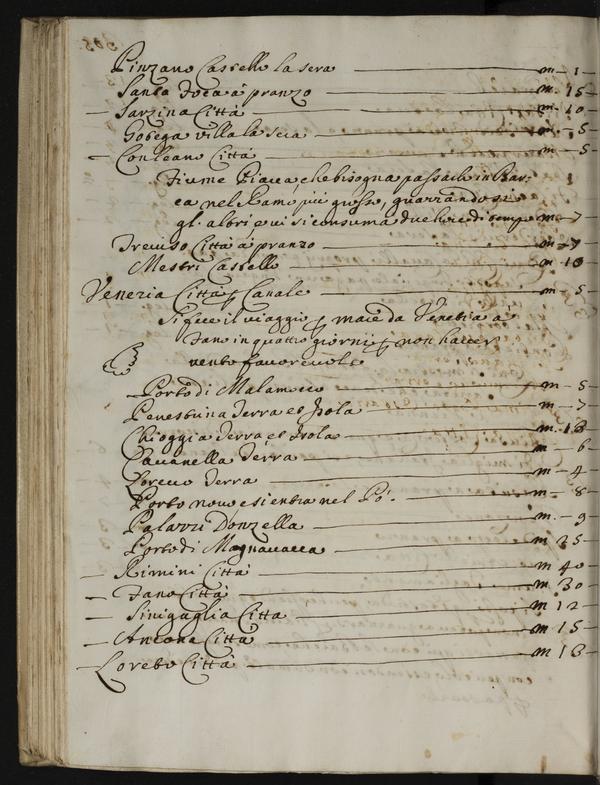 Pinzano Castello la sera m - 1
Santa Foca à pranzo m. 15
Sarzina Città m. 10
Godega villa la sera m. 5
Conleano Città m - 5
Fiume Piava, che bisogna passarlo in Bar:
ca nel Ramo più grosso, guazzandosi
gl'altri e vi si consuma due hore di tempo m - 7
Treviso Città à pranzo m - 7
Mestri Castello m 10
Venezia Città p Canale m - 5
Si fece il viaggio p mare da Venetia à
Fano in quattro giorni p non haver
vento favorevole
Porto di Malamoco m - 5
Penestrina Terra et Isola m - 7
Chioggia Terra, et Isola m. 18
Cavanella Terra m - 6
Loreo Terra m - 4
Porto novo e si entra nel Pò. m - 8
Palazzi Donzella m. - 9
Porto di Magnavacca m 25
Rimini Città m 40
Fano Città m 30
Sinigaglia Città m 12
Ancona Città m 15
Loreto Città m 18